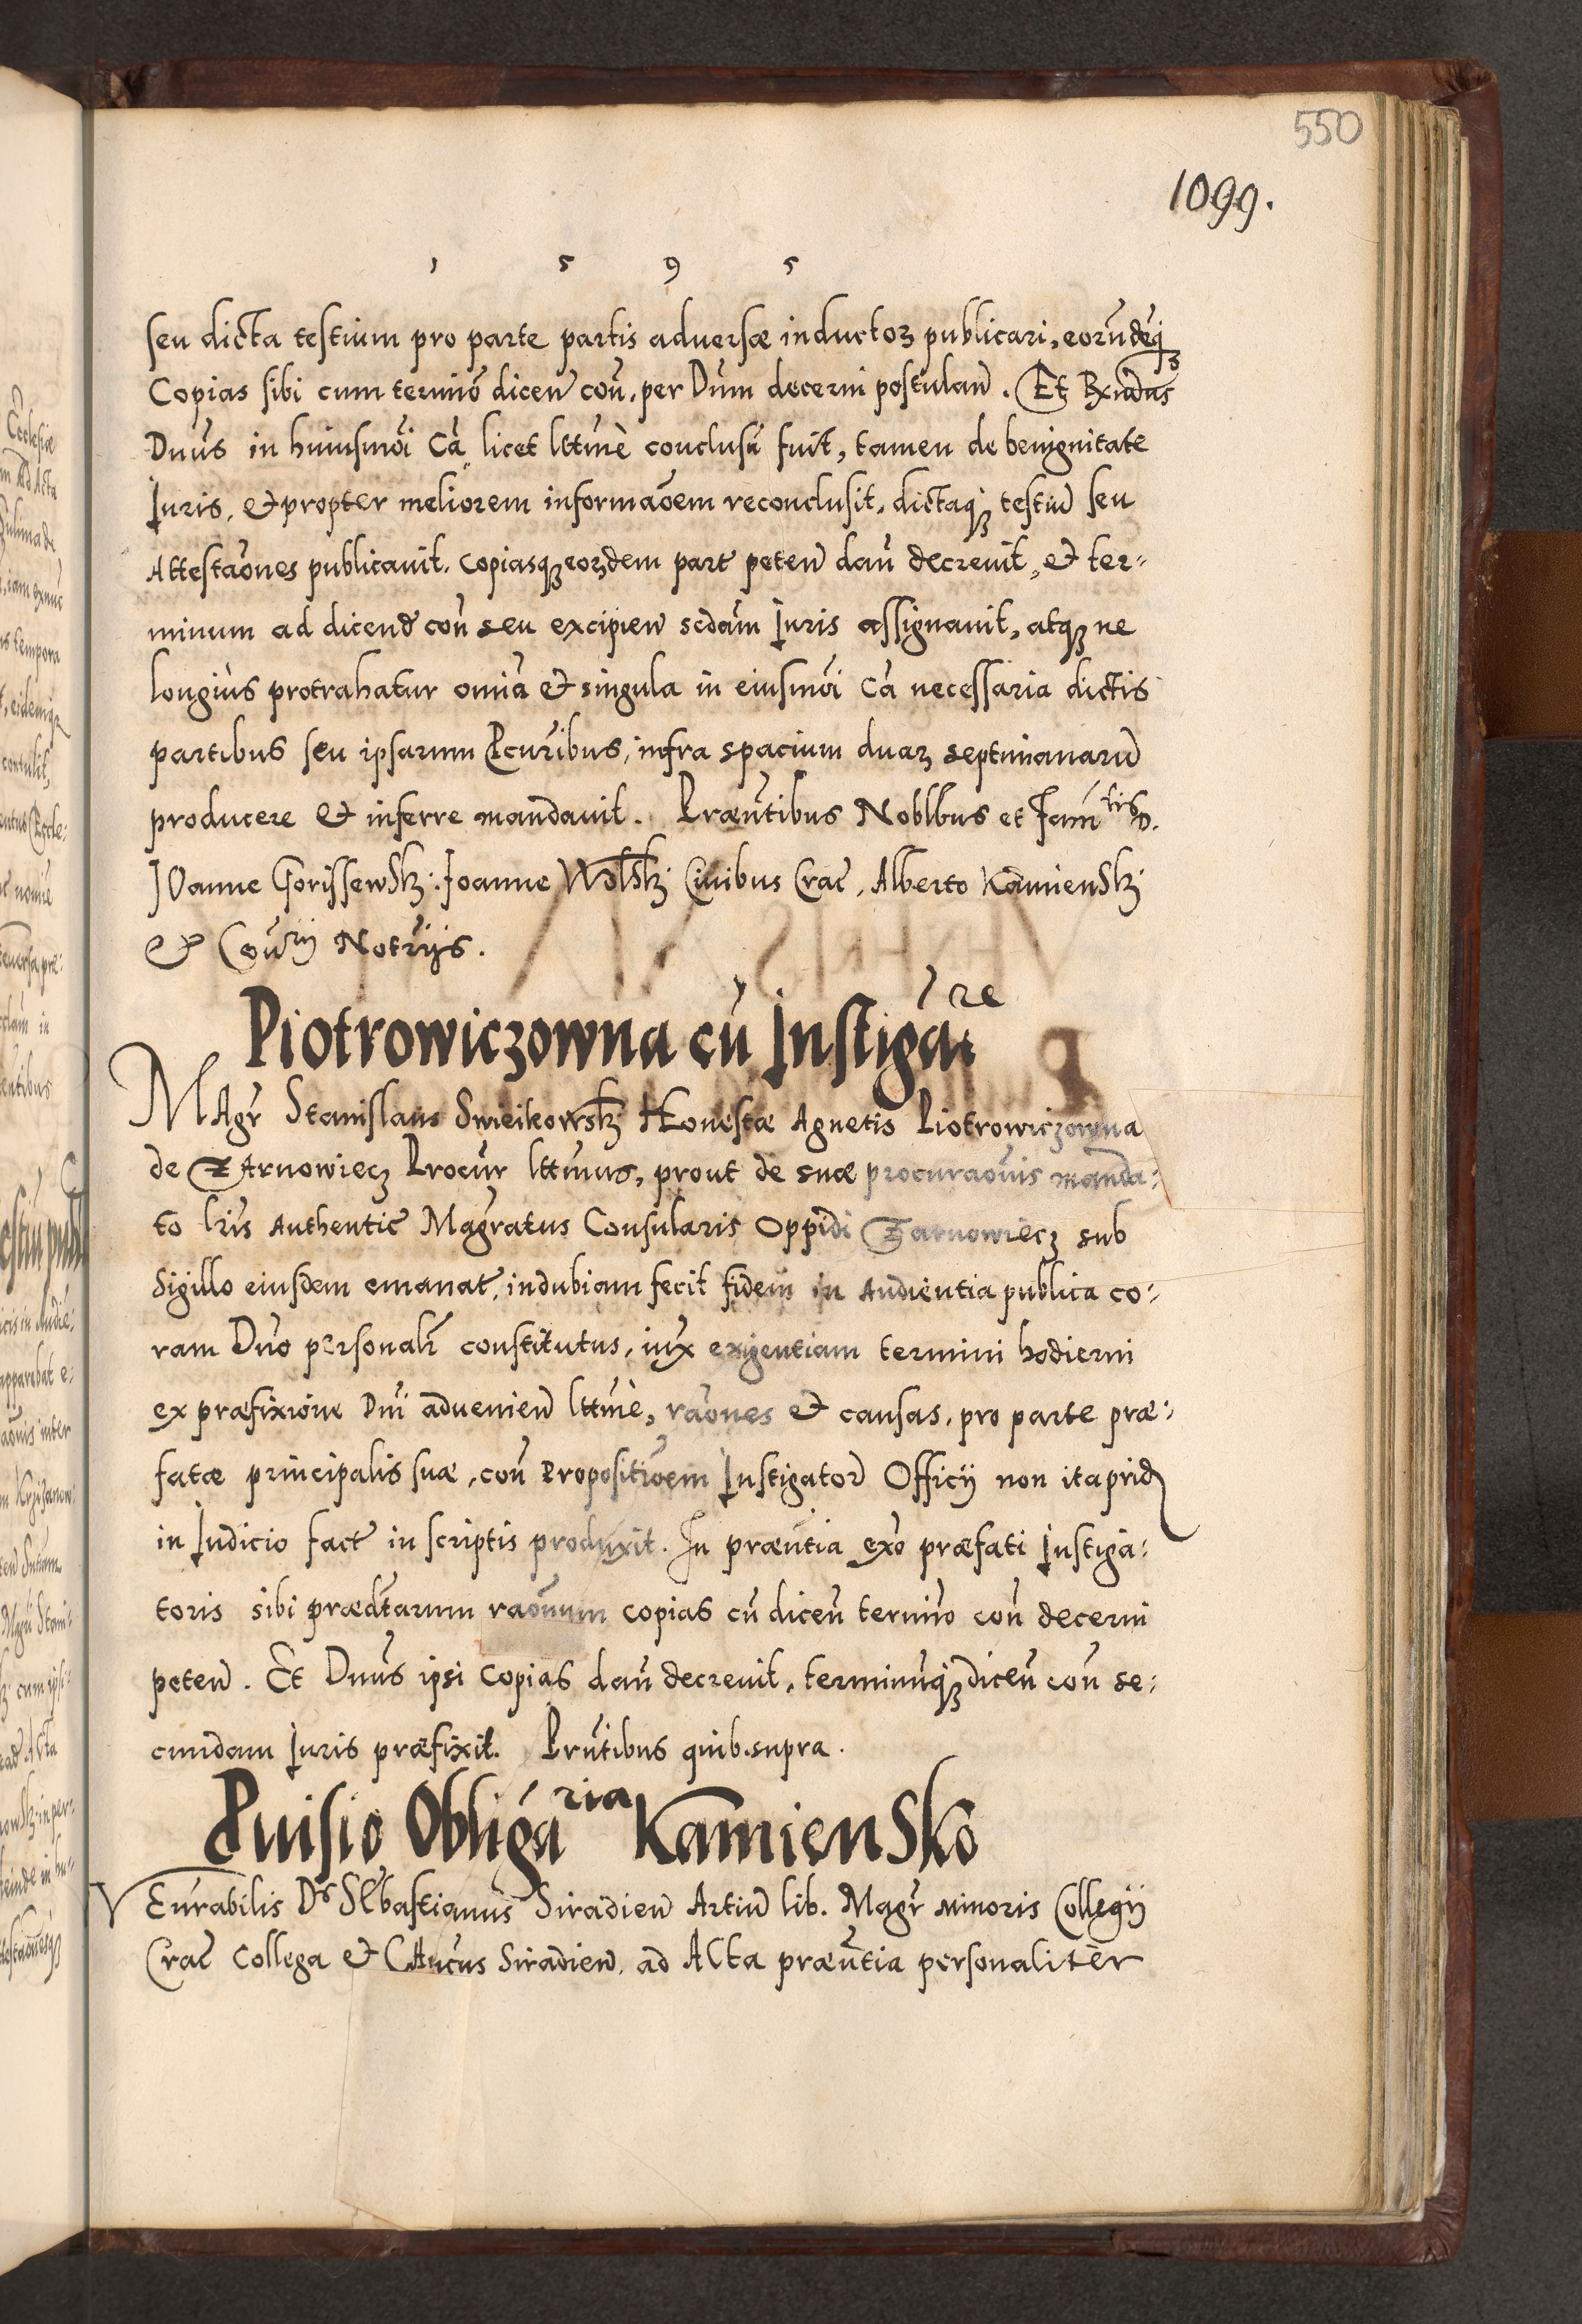 550
1099.
1 5 9 5
seu dicta testium pro parte partis adversæ inductoꝝ publicari, eorūdēqꝫ
Copias sibi cum termiō diceń coń, per Dnm̄ decerni postulań. Et Rx̄ndus
Dnūs in huiusmōi Cā licet lttm̄è conclusū fuit, tamen de benignitate
Iuris, et propter meliorem informaōem reconclusit, dictaqꝫ testiū seu
Attestaōnes publicavit, copiasqꝫ eoꝝdem part peteń dań decrevit, et ter-
minum ad dicend coń seu excipień scdām Iuris assignavit, atqꝫ ne
longiùs protrahatur omīa et singula in eiusmōi Cā necessaria dictis
partibus seu ipsarum Pcuribus, infra spacium duaꝝ septimanarū
producere et inferre mandavit. Præn̄tibus Noblbus et Fam tis D.
IOanne Gorissewskj. Joanne Wolskj Civibus Crac, Alberto Kamienskj
et Coūrij Notrijs.
Piotrowiczowna cū Instigāre
MAgr Stanislaus Swieikowskj HOnestæ Agnetis Piotrowiczowna
de ZArnowiecz Procur lttmus, prout de suæ procuraōnis manda-
to lris Authentic Magratus Consularis Oppidi Zarnowiecz sub
Sigillo eiusdem emanat, indubiam fecit fidem in Audientia publica co-
ram Dno personalr constitutus, iux exigentiam termini hodierni
ex præfixione Dni advenień lttmè, raōnes et causas, pro parte præ-
fatæ principalis suæ, coń Propositiōem Instigator Officij non itaprid
in Iudicio fact in scriptis produxit. In præn̄tia exo præfati Instiga-
toris sibi prædtarum raōnum copias cū diceń termīo coń decerni
peteń. Et Dnūs ipsi copias dań decrevit, terminūqꝫ diceń coń se-
cundam Iuris præfixit. Prn̄tibus quib. supra.
Pvisio Obligaria Kamiensko
VEnrabilis Ds SEbastianus Siradień Artiū lib. Magr minoris Collegij
Crac Collega et CAn̄cus Siradień, ad Acta præn̄tia personalitèr